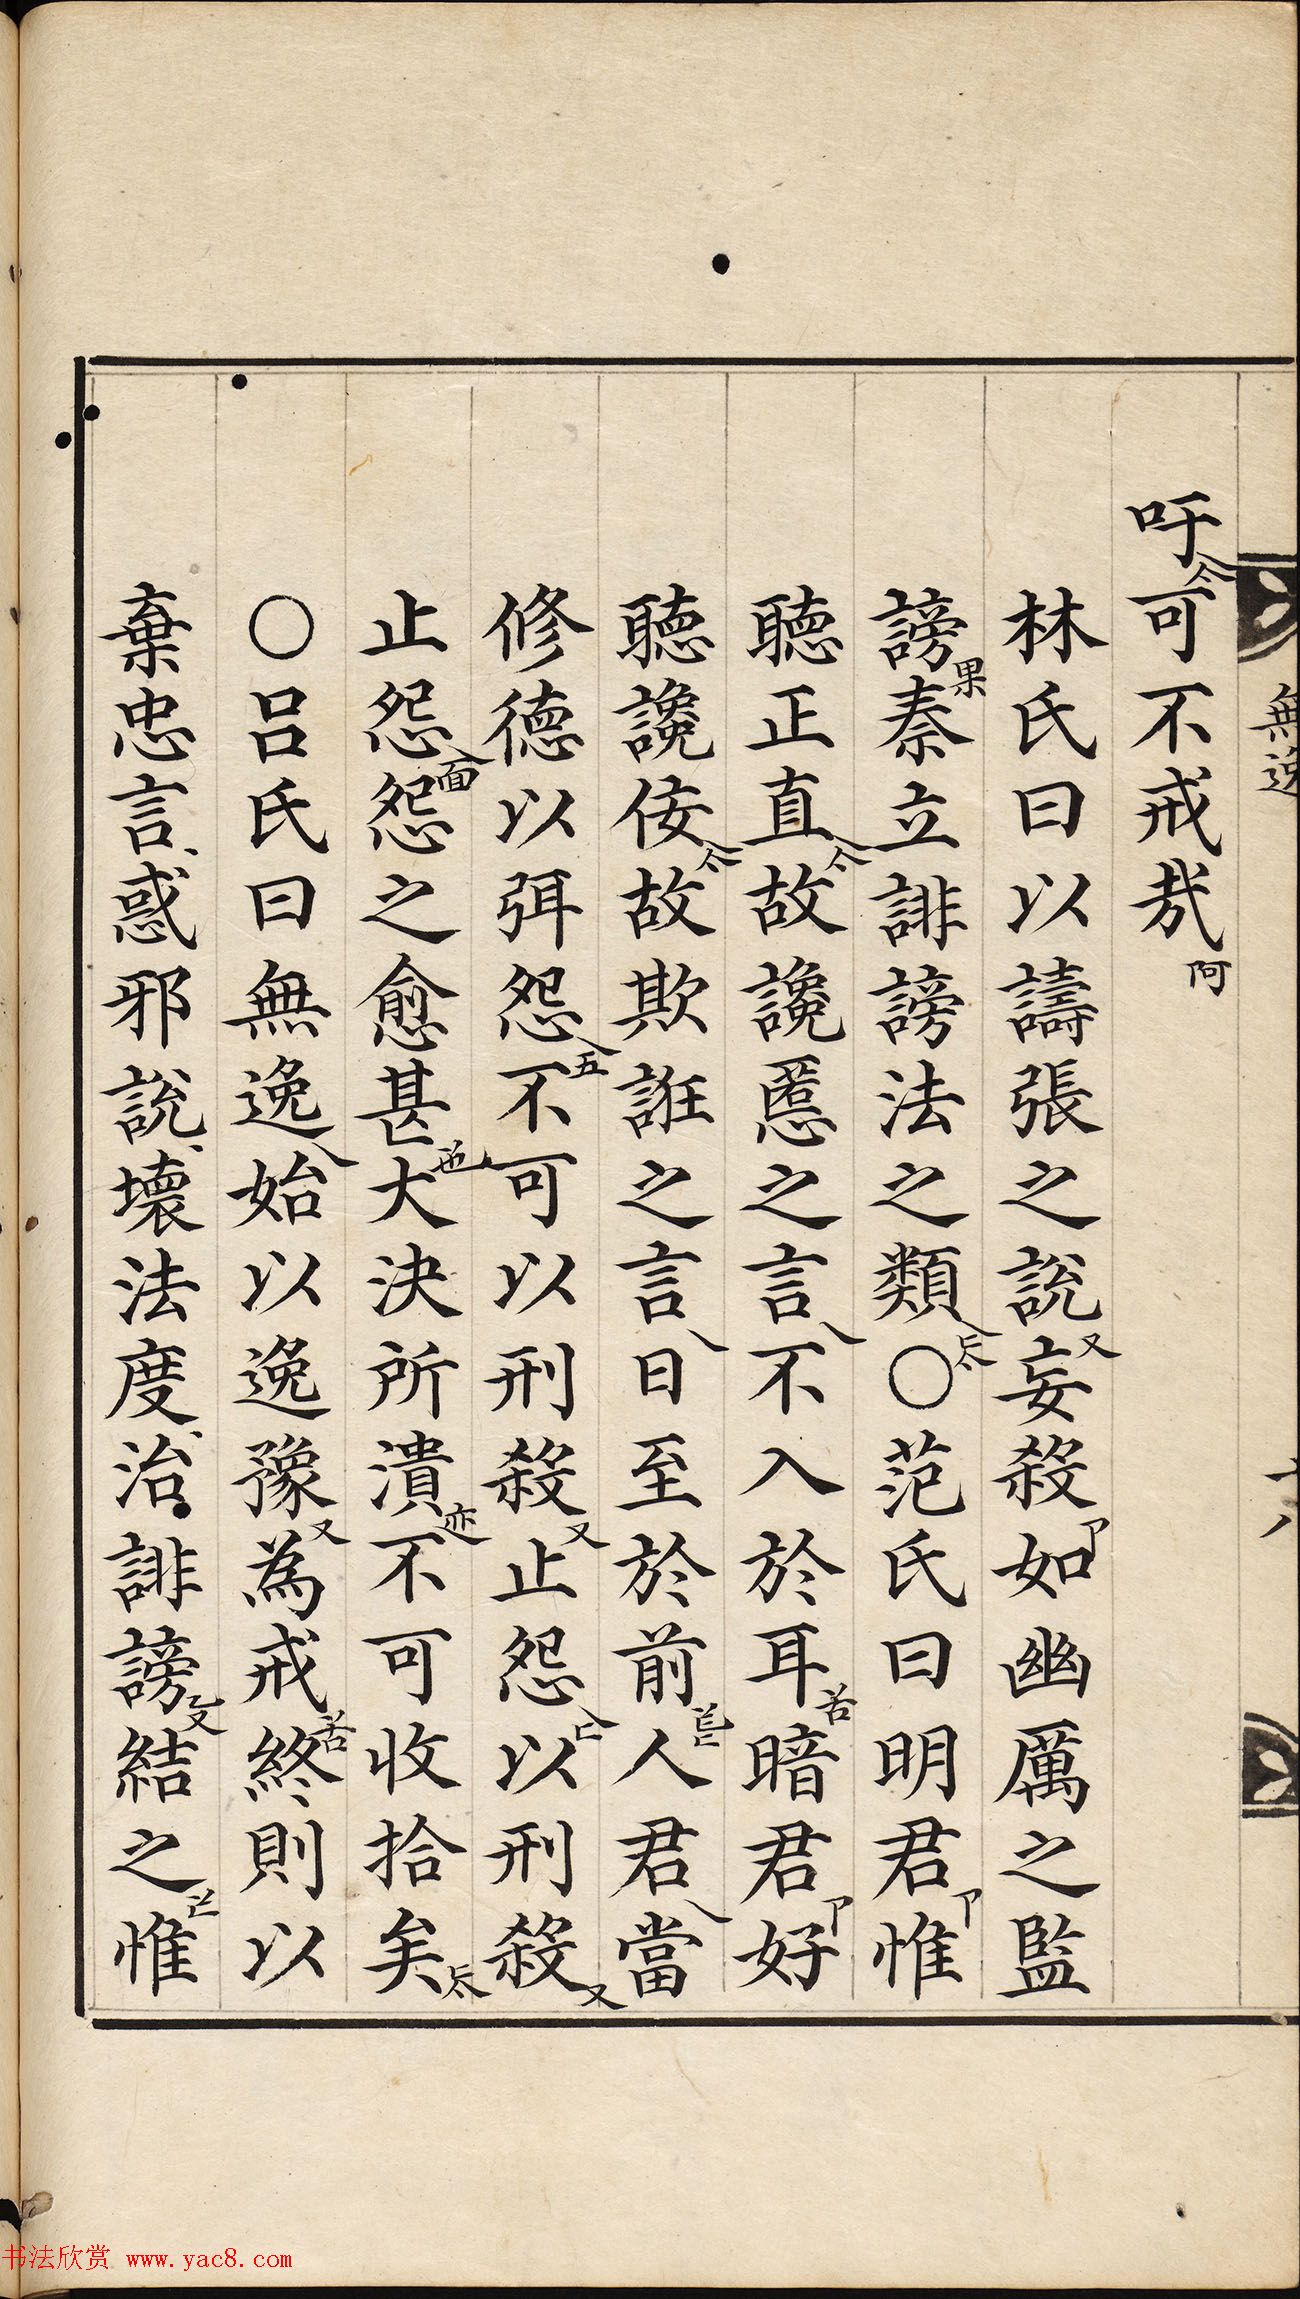 無逸
十八
吁可不戒㢤阿
林氏曰以譸張之說又妄殺如幽厲之監
謗果秦立誹謗法之類〇范氏曰明君惟
聴正直故讒慝之言不入於耳苦暗君好
聴讒佞故欺誑之言日至於前人君當
修德以弭怨五不可以刑殺又止怨以刑殺又
止怨面怨之愈甚大決所潰亦不可收拾矣
〇呂氏曰無逸始以逸豫又為戒苦終則以
棄忠言惑邪說壊法度治誹謗結之惟
书法欣赏 www.yac8.com